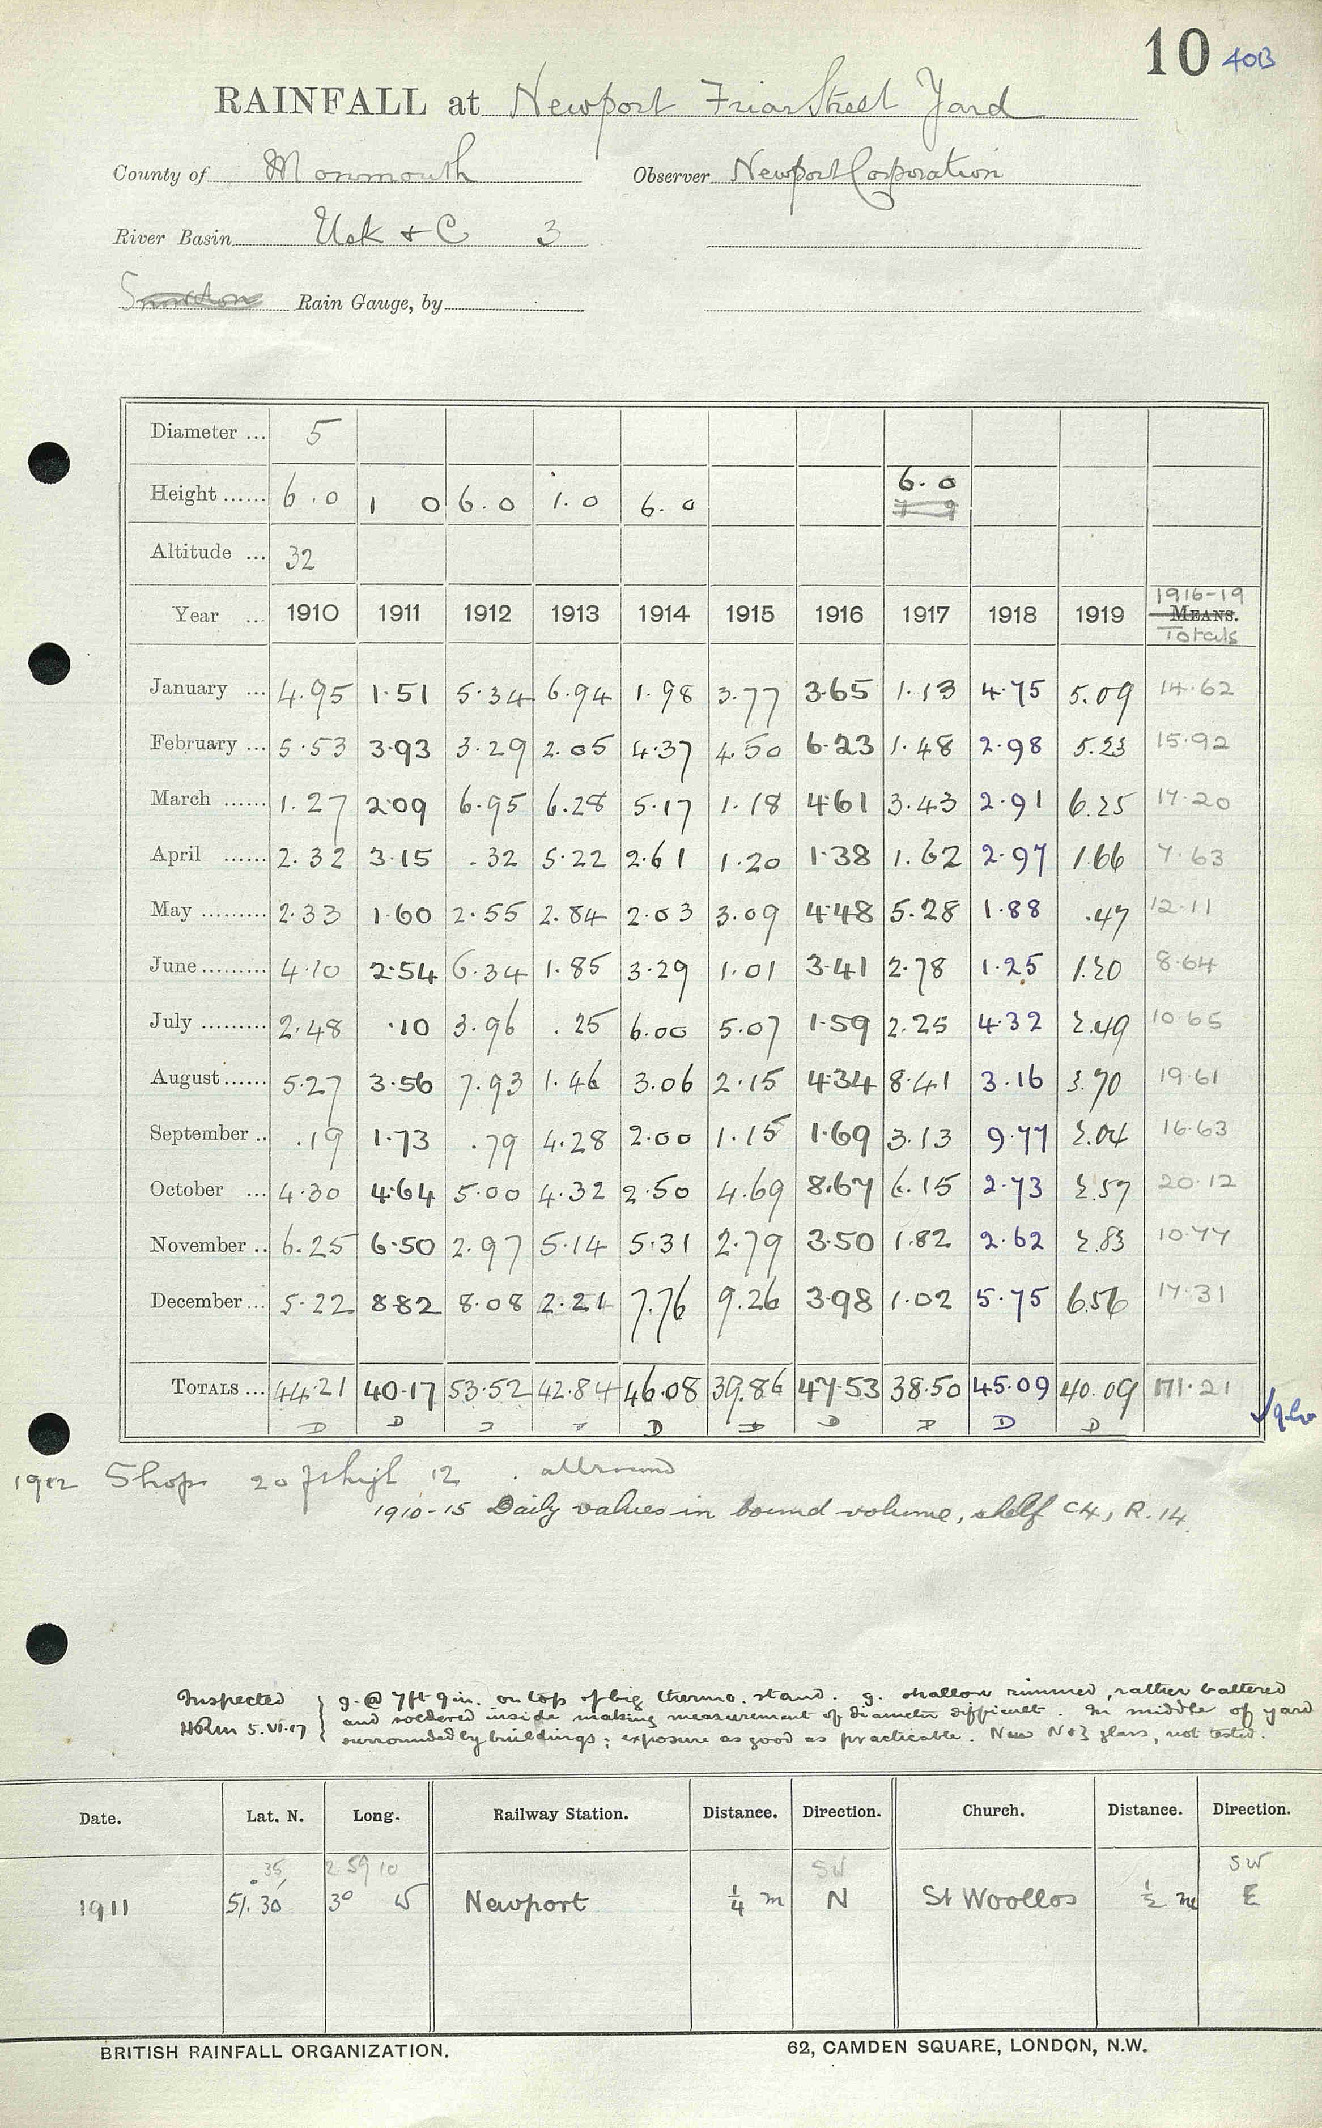 10 40B
RAINFALL at Newport Friar Street Yard
County of Monmouth Observer Newport Corporation
River Basin Usk + C 3
Snowdon Rain Gauge, by
Diameter ... 5
Height ...... 6.0 1 0 6.0 1.0 6.0 6.0
7 9
Altitude ... 32
1916-19
Year ... 1910 1911 1912 1913 1914 1915 1916 1917 1918 1919 MEANS.
Totals
January ... 4.95 1.51 5.34 6.94 1.98 3.77 3.65 1.13 4.75 5.09 14.62
February ... 5.53 3.93 3.29 2.05 4.37 4.50 6.23 1.48 2.98 5.23 15.92
March ...... 1.27 2.09 6.95 6.28 5.17 1.18 4.61 3.43 2.91 6.25 17.20
April ...... 2.32 3.15 .32 5.22 2.61 1.20 1.38 1.62 2.97 1.66 7.63
May ......... 2.33 1.60 2.55 2.84 2.03 3.09 4.48 5.28 1.88 .47 12.11
June ......... 4.10 2.54 6.34 1.85 3.29 1.01 3.41 2.78 1.25 1.20 8.64
July ......... 2.48 .10 3.96 .25 6.00 5.07 1.59 2.25 4.32 2.49 10.65
August ...... 5.27 3.56 7.93 1.46 3.06 2.15 4.34 8.41 3.16 3.70 19.61
September .. .19 1.73 .79 4.28 2.00 1.15 1.69 3.13 9.77 2.04 16.63
October ... 4.30 4.64 5.00 4.32 2.50 4.69 8.67 6.15 2.73 2.57 20.12
November .. 6.25 6.50 2.97 5.14 5.31 2.79 3.50 1.82 2.62 2.83 10.77
December ... 5.22 8.82 8.08 2.21 7.76 9.26 3.98 1.02 5.75 6.56 17.31
TOTALS ... 44.21 40.17 53.52 42.84 46.08 39.86 47.53 38.50 45.09 40.09 171.21
D D D D D D D D D D
Shop 20 ft high 12 allround
1910-15 Daily values in bound volume, shelf C4, R.14
Inspected g. @ 7ft 9in. on top of big thermo. stand. g. shallow rimmed, rather battered
5.VI.17 and soldered inside making measurement of diameter difficult. In middle of yard
surrounded by buildings; exposure as good as practicable. New No 3 glass, not tested.
Date. Lat. N. Long. Railway Station. Distance. Direction. Church. Distance. Direction.
35 2 59 10 SW SW
1911 51.30' 3° W Newport ¼ m N St Woollos ½ m E
BRITISH RAINFALL ORGANIZATION. 62, CAMDEN SQUARE, LONDON, N.W.